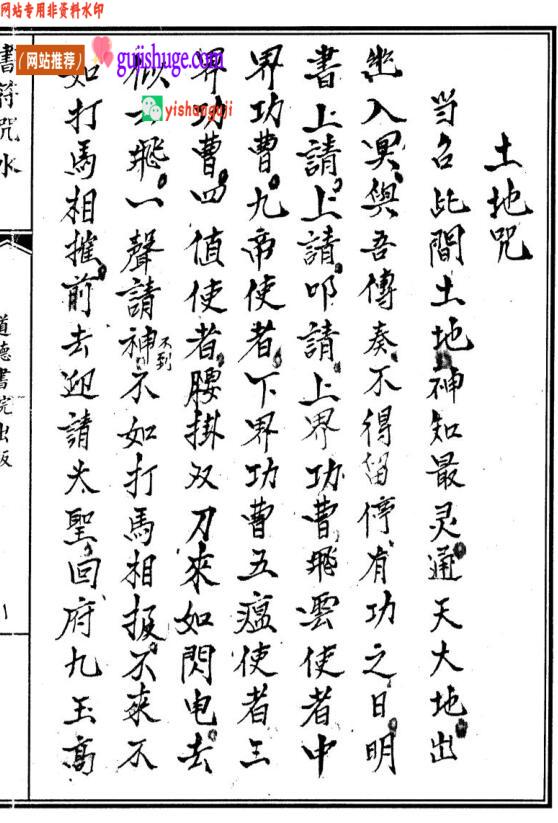 网站专用非资料水印
(网站推荐)
gujishuge.com
yishanguji
土地咒
当召此間土地神知最灵通天大地出
幽入冥與吾傳奏不得留停有功之日明
書上請上請叩請上界功曹飛雲使者中
界功曹九帝使者下界功曹五瘟使者三
界功曹四值使者腰掛双刀來如閃电去
似飛一聲請神不到不如打馬相报不來不
如打馬相摧前去迎請大聖回府九玉高
書符咒水
道德書院出版